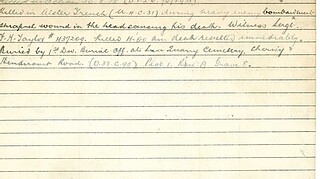 Killed in Alster Trench (M.H.C.31) during heavy enemy bombardment
shrapnel wound in the head causing his death. Witness Sergt.
F. H. Taylor # 437209. Killed 11.00 Am death resulted immediately.
Buried by 1st Div. Burial Off. at Sun Quarry Cemetery, Cherisy &
Hendecourt Road. (0.33.c.90) Plot 1. Row A Grave 5.